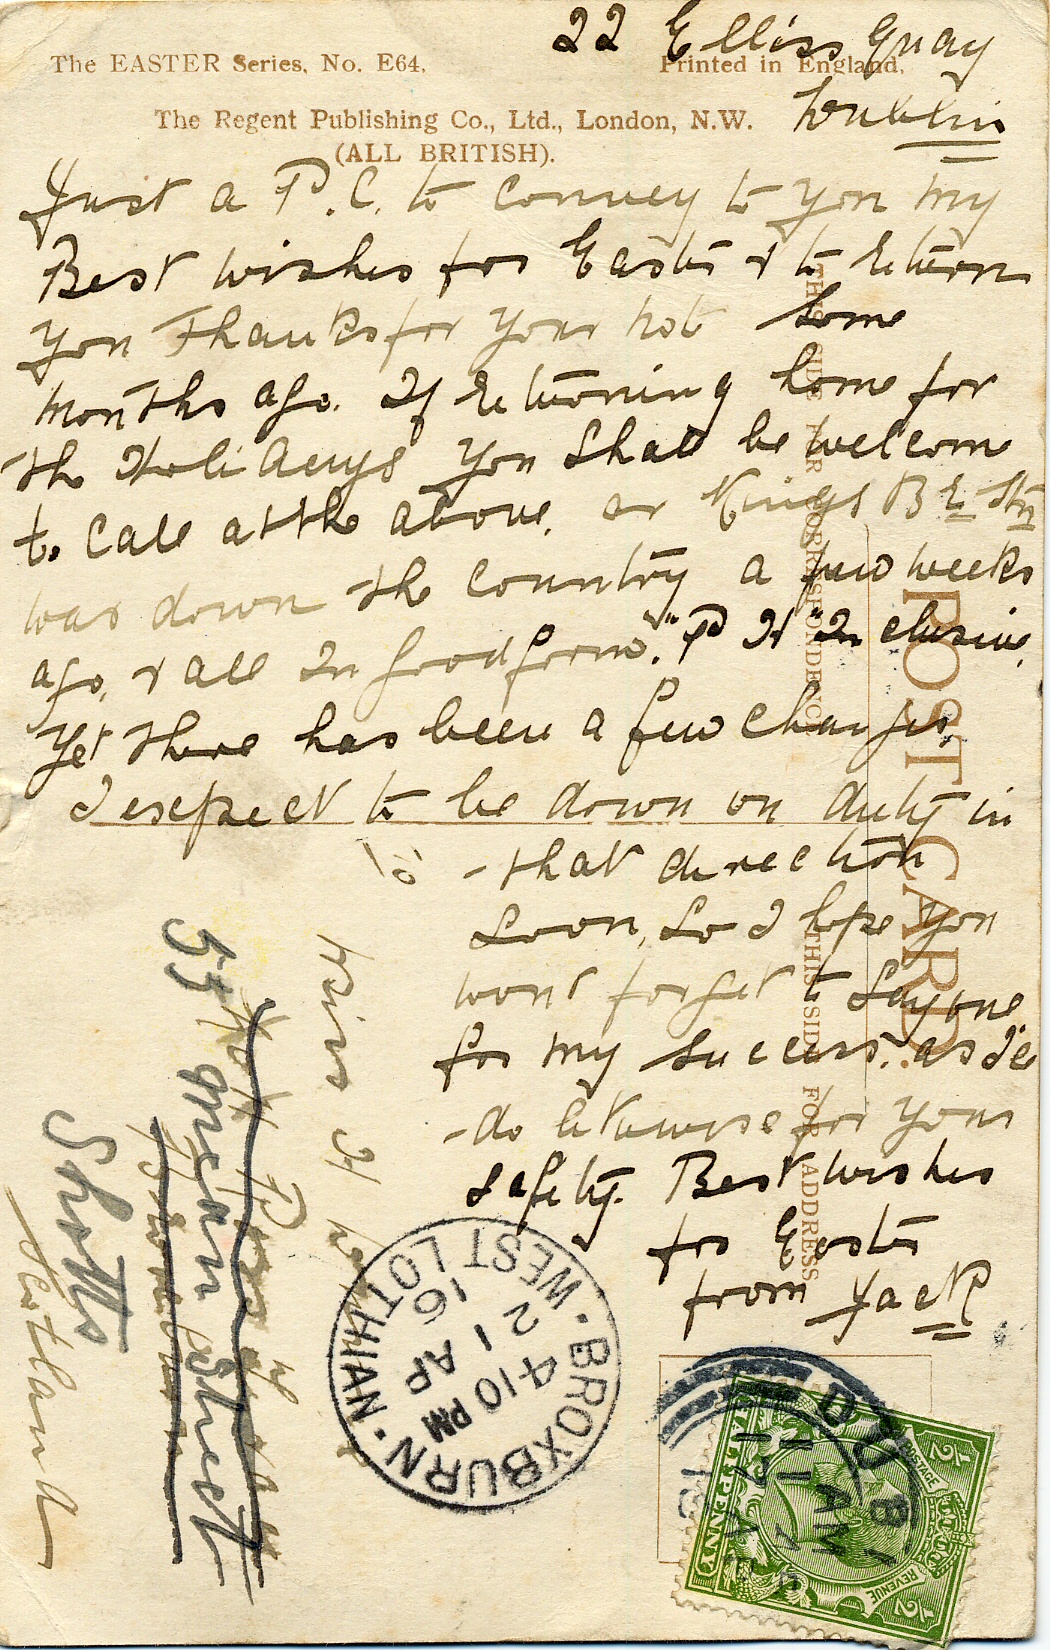 The EASTER Series, No. E64.
Printed in England.
The Regent Publishing Co., Ltd., London, N.W.
(ALL BRITISH).
22 Elliss Quay
Dublin
Just a P.C. to convey to you my
Best wishes for Easter & to return
you thanks for your not some
months ago. If returning home for
the Holidays you shall be welcome
to call at the above. or Kings Br Stn
was down the country a few weeks
ago, & all in good form. "P H" Inclusive.
Yet there has been a few changes.
I expect to be down on duty in
that direction
soon, so I hope you
wont forget to say one
for my success. as I'll
do likewise for your
safety. Best wishes
for Easter
from Jack
POST CARD.
THIS SIDE FOR CORRESPONDENCE
THIS SIDE FOR ADDRESS
To
Miss H
55
Street
Shotts
Scotland
BROXBURN · WEST LOTHIAN
4 10 PM
21 AP
16
DUB
11 AM
17 AP
16
POSTAGE
REVENUE
HALFPENNY
1/2
1/2